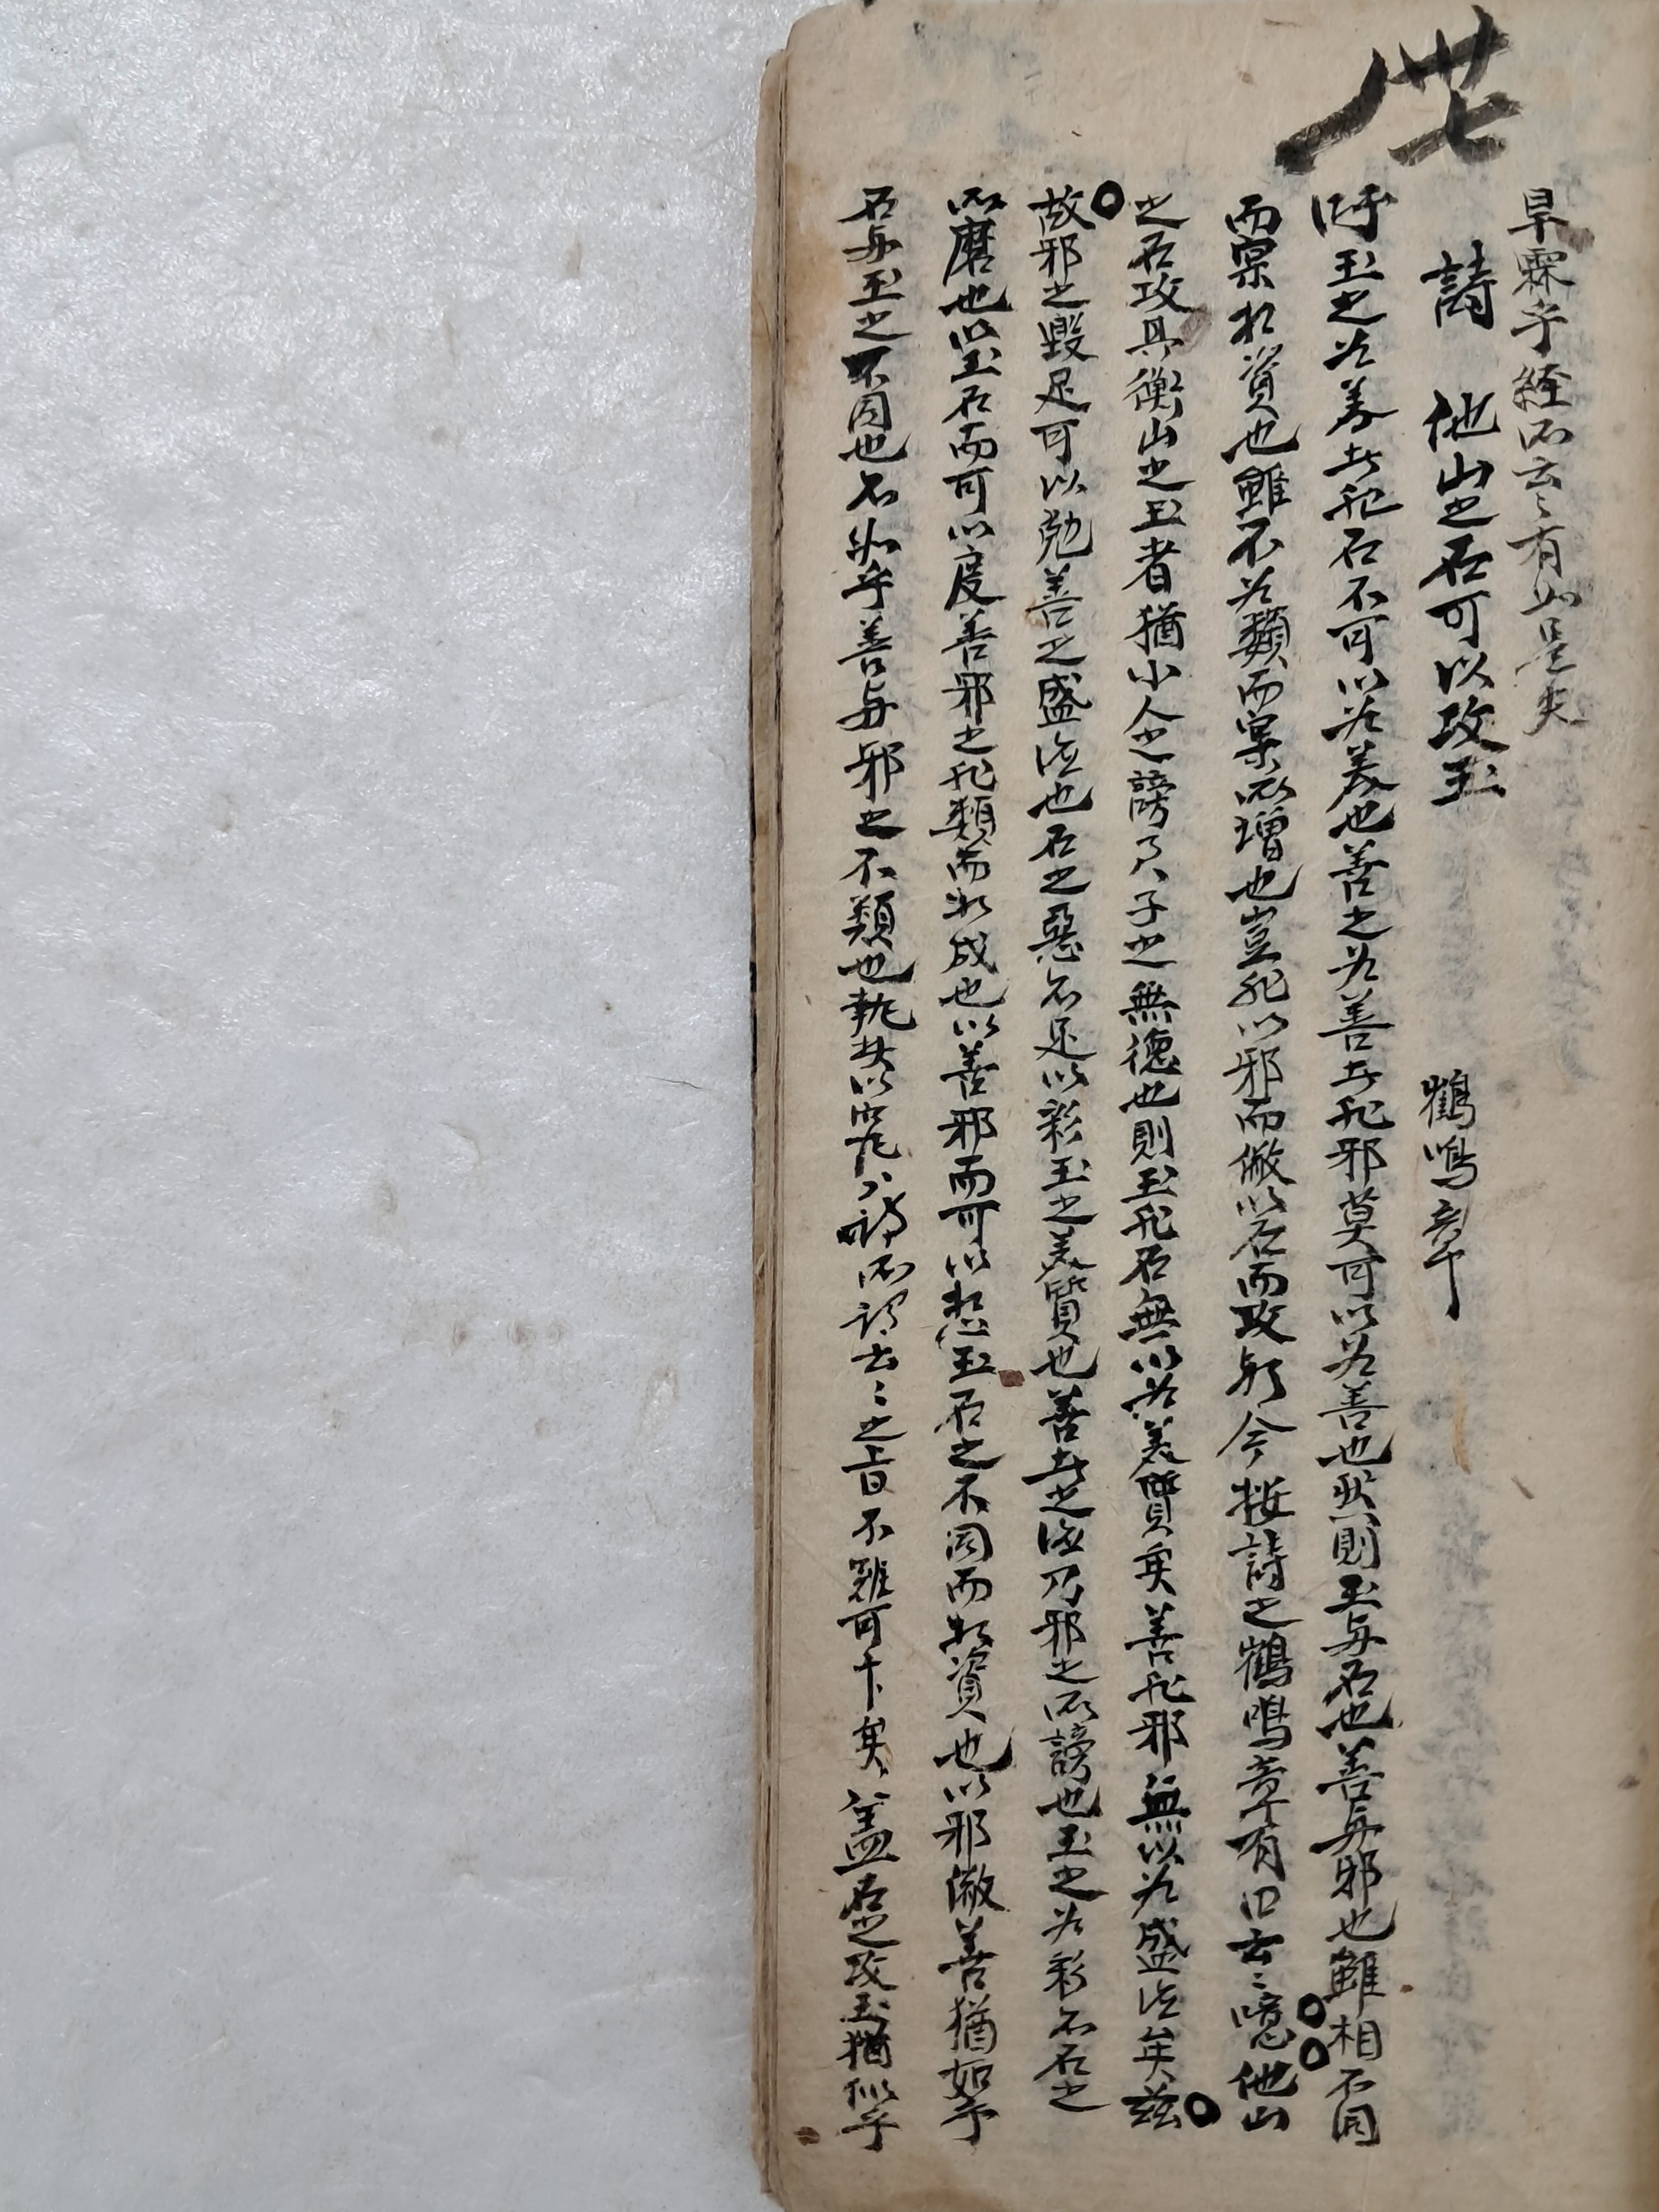 卄七
早霖乎經所云〻有如是夫
詩 他山之石可以攻玉 鶴鳴章
吁玉之为美者非石不可以为美也善之为善者非邪莫可以为善也然則玉与石也善与邪也雖相不同
而寀於資也雖不为類而寀所增也豈非以邪而儆以石而攻歟今按詩之鶴鳴章有曰云〻噫他山
之石攻其衡山之玉者猶小人之謗君子之無德也則玉非石無以为美質矣善非邪無以为盛德矣兹
故邪之毀足可以勉善之盛德也石之惡不足以彩玉之美質也善者之德乃邪之所謗也玉之为彩不石之
所磨也以玉石而可以度善邪之非類而相成也以善邪而可以想玉石之不同而相資也以邪儆善猶如乎
石与玉之不同也不如乎善与邪之不類也執其以究八詩所謂云〻之旨不難可卞矣盖石之攻玉猶似乎